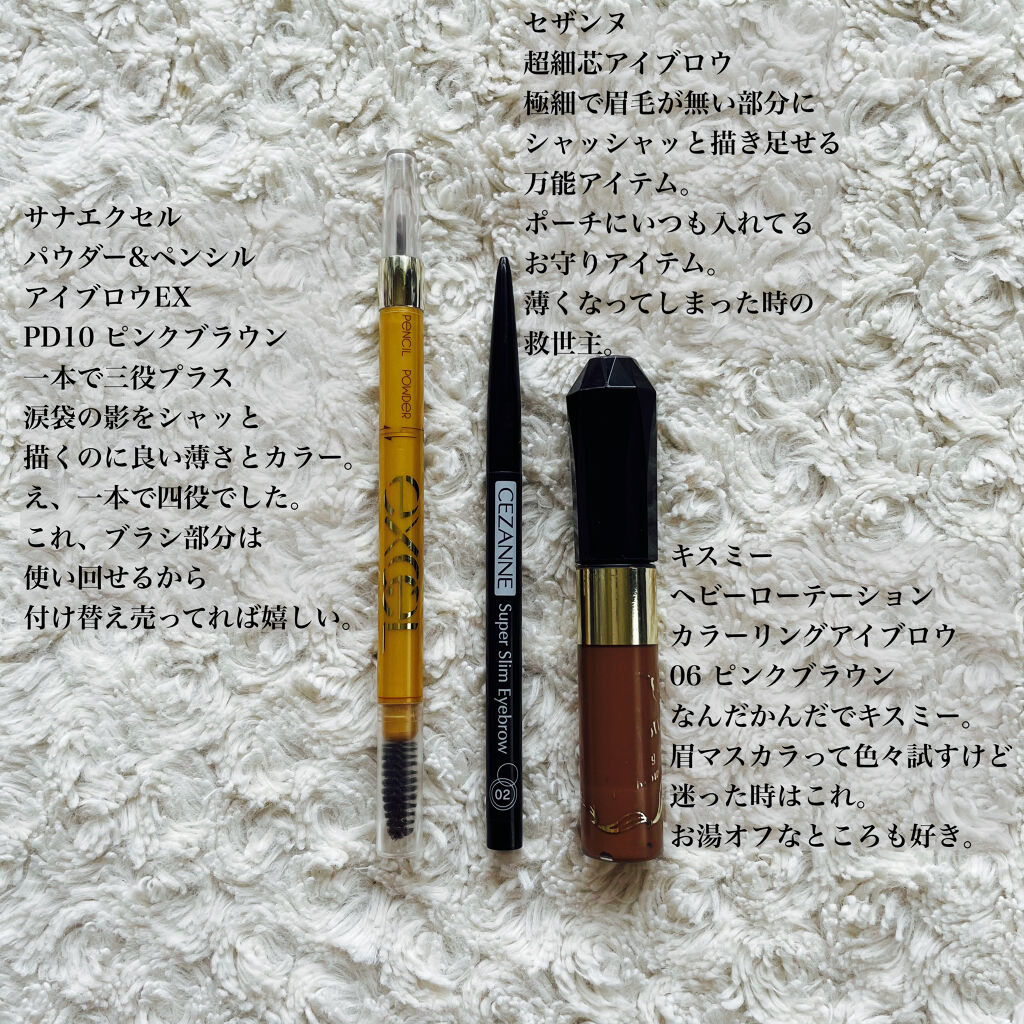 セザンヌ
超細芯アイブロウ
極細で眉毛が無い部分に
シャッシャッと描き足せる
万能アイテム。
ポーチにいつも入れてる
お守りアイテム。
薄くなってしまった時の
救世主。
サナエクセル
パウダー&ペンシル
アイブロウEX
PD10 ピンクブラウン
一本で三役プラス
涙袋の影をシャッと
描くのに良い薄さとカラー。
え、一本で四役でした。
これ、ブラシ部分は
使い回せるから
付け替え売ってれば嬉しい。
PENCIL POWDER
excel
CEZANNE Super Slim Eyebrow 02
キスミー
ヘビーローテーション
カラーリングアイブロウ
06 ピンクブラウン
なんだかんだでキスミー。
眉マスカラって色々試すけど
迷った時はこれ。
お湯オフなところも好き。